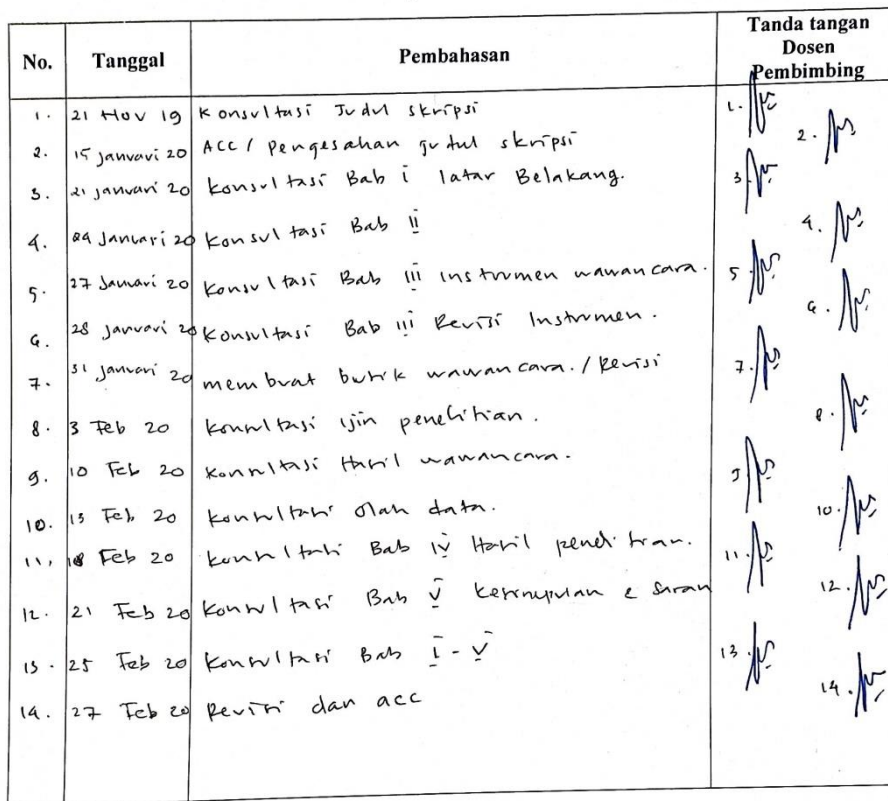 No. Tanggal Pembahasan Tanda tangan Dosen Pembimbing
1. 21 Nov 19 Konsultasi Judul skripsi 1.
2. 15 Januari 20 ACC / Pengesahan Judul skripsi 2.
3. 21 Januari 20 Konsultasi Bab I latar Belakang. 3
4. 24 Januari 20 Konsultasi Bab II 4.
5. 27 Januari 20 Konsultasi Bab III instrumen wawancara. 5
6. 28 Januari 20 Konsultasi Bab III Revisi Instrumen. 6.
7. 31 Januari 20 membuat butik wawancara. / Revisi 7.
8. 3 Feb 20 Konsultasi ijin penelitian. 8.
9. 10 Feb 20 Konsultasi Hasil wawancara. 9
10. 13 Feb 20 Konsultasi olah data. 10.
11. 18 Feb 20 Konsultasi Bab IV Hasil penelitian. 11.
12. 21 Feb 20 Konsultasi Bab V kesimpulan & saran 12.
13. 25 Feb 20 Konsultasi Bab I - V 13.
14. 27 Feb 20 Revisi dan acc 14.